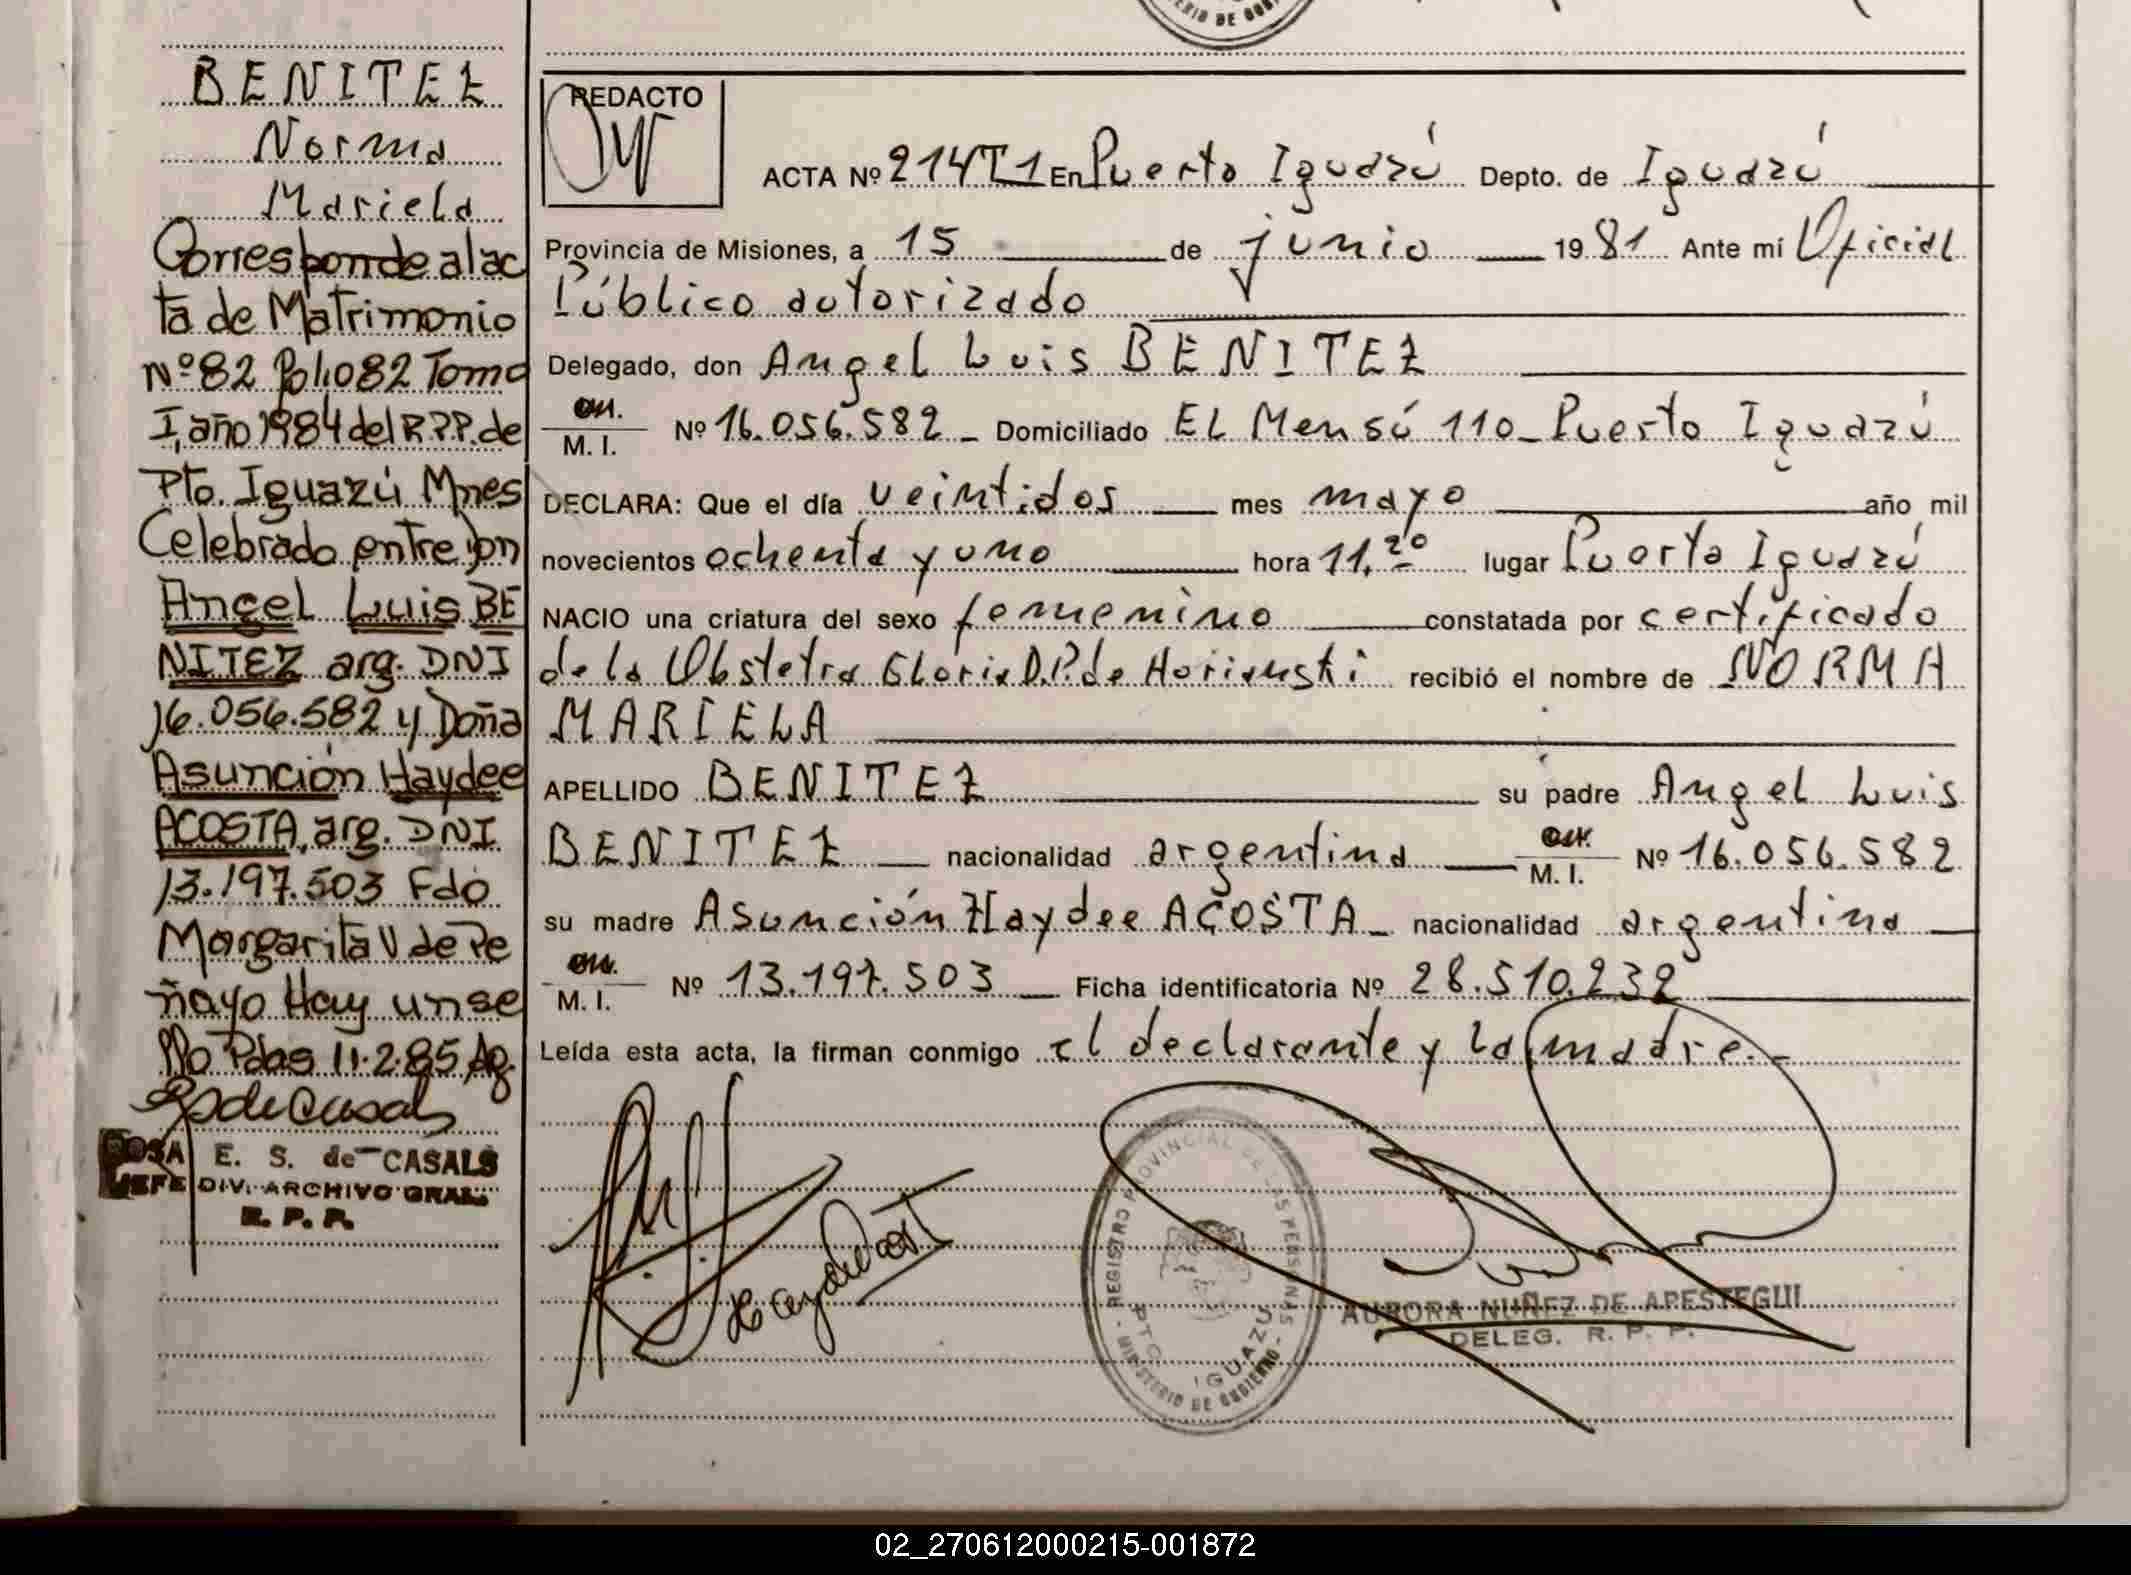 BENITEZ
Norma
Mariela
Corresponde al ac
ta de Matrimonio
Nº 82 Folio 82 Tomo
I, año 1984 del R.P.P. de
Pto. Iguazú Mnes
Celebrado entre Don
Angel Luis BE
NITEZ arg. DNI
16.056.582 y Doña
Asunción Haydee
ACOSTA, arg. DNI
13.197.503 Fdo
Margarita V de Pe
ñayo Hay un se
llo Pdas 11.2.85
ROSA E. S. de CASALS
JEFE DIV. ARCHIVO GRAL.
R. P. P.
REDACTO
ACTA Nº 214T1 En Puerto Iguazú Depto. de Iguazú
Provincia de Misiones, a 15 de junio 1981 Ante mí Oficial
Público autorizado
Delegado, don Angel Luis BENITEZ
M. I. Nº 16.056.582 Domiciliado EL Mensú 110 Puerto Iguazú
DECLARA: Que el día veintidos mes mayo año mil
novecientos ochenta y uno hora 11,20 lugar Puerto Iguazú
NACIO una criatura del sexo femenino constatada por certificado
de la Obstetra Gloria D.P. de recibió el nombre de NORMA
MARIELA
APELLIDO BENITEZ su padre Angel Luis
BENITEZ nacionalidad argentina M. I. Nº 16.056.582
su madre Asunción Haydee ACOSTA nacionalidad argentina
M. I. Nº 13.197.503 Ficha identificatoria Nº 28.510.232
Leída esta acta, la firman conmigo el declarante y la madre.
REGISTRO PROVINCIAL DE LAS PERSONAS
PTO. IGUAZU
MINISTERIO DE GOBIERNO
AURORA NUÑEZ DE APESTEGUI
DELEG. R. P. P.
02_270612000215-001872